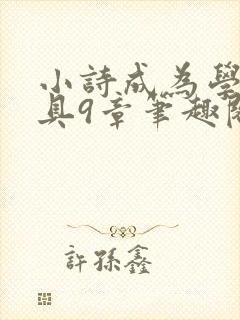 小詩成為學
具9章筆趣閱
許孫鑫